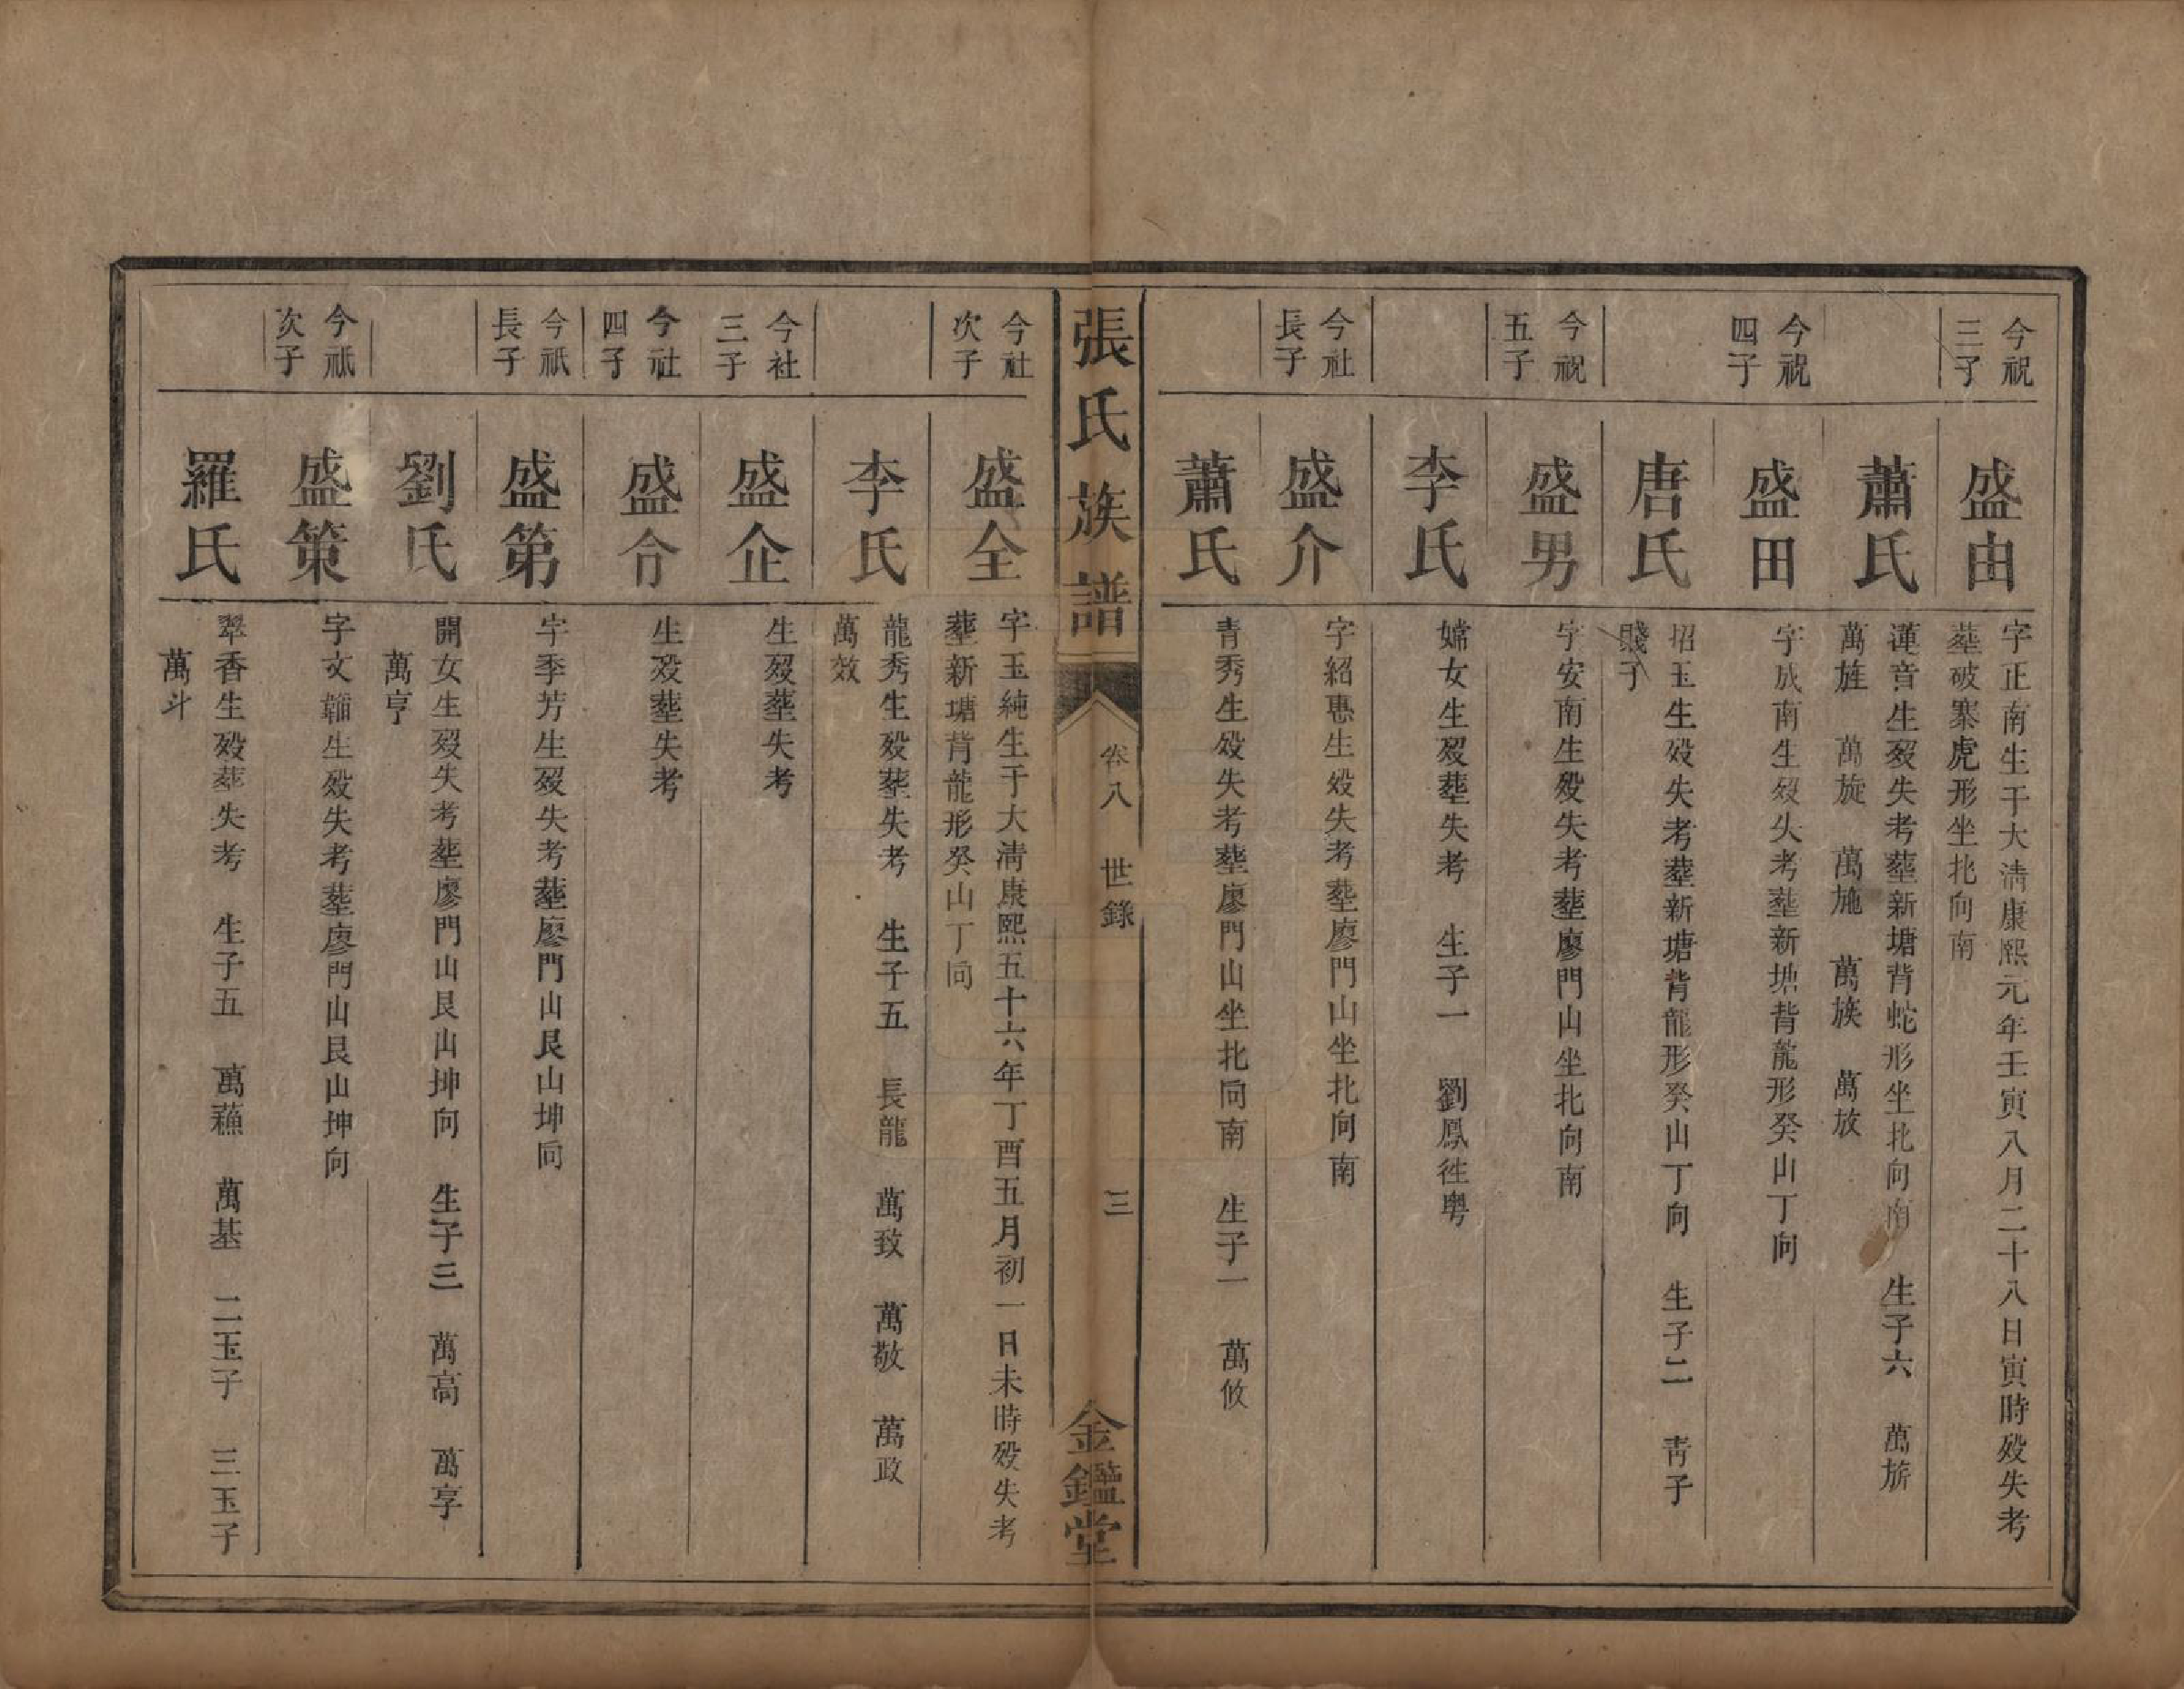 今祝
三子
盛由
字正南生于大清康熙元年壬寅八月二十八日寅時殁失考
塟破寨虎形坐北向南
蕭氏
運音生殁失考塟新塘背蛇形坐北向南 生子六 萬旂
萬旌 萬旋 萬施 萬族 萬放
今祝
四子
盛田
字成南生殁失考塟新塘背龍形癸山丁向
唐氏
招玉生殁失考塟新塘背龍形癸山丁向 生子二 靑子
賤子
今祝
五子
盛男
字安南生殁失考塟廖門山坐北向南
李氏
嫦女生殁塟失考 生子一 劉鳳徃粤
今社
長子
盛介
字紹惠生殁失考塟廖門山坐北向南
蕭氏
青秀生殁失考塟廖門山坐北向南 生子一 萬攸
張氏族譜 卷八 世錄 三 金鑑堂
今社
次子
盛全
字玉純生于大清康熙五十六年丁酉五月初一日未時殁失考
塟新塘背龍形癸山丁向
李氏
龍秀生殁塟失考 生子五 長龍 萬致 萬敬 萬政
萬效
今社
三子
盛企
生殁塟失考
今社
四子
盛㑒
生殁塟失考
今祇
長子
盛第
字季芳生殁失考塟廖門山艮山坤向
劉氏
開女生殁失考塟廖門山艮山坤向 生子三 萬高 萬享
萬亨
今祇
次子
盛策
字文黼生殁失考塟廖門山艮山坤向
羅氏
翠香生殁塟失考 生子五 萬蘓 萬基 二玉子 三玉子
萬斗